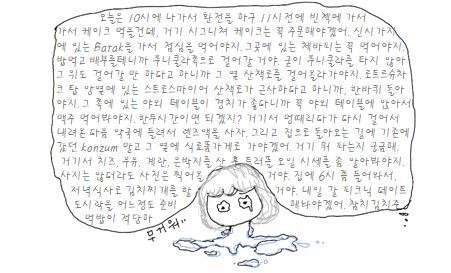 오늘은 10시에 나가서 환전을 하구 11시전에 빈첵에 가서
가서 케이크 먹을건데, 거기 시그니쳐 케이크는 꼭 주문해야겠어. 신시가지
에 있는 Batak을 가서 점심을 먹어야지. 그곳에 있는 체바피는 꼭 먹어야지.
밥먹고 배부를테니까 푸니쿨라쪽으로 걸어갈 거야. 굳이 푸니쿨라를 타지 않아
그 위도 걸어갈 만 하다고 하니까 그 옆 산책로를 걸어올라가야지. 로트르슈차
크 탑 양옆에 있는 스트로스마이어 산책로가 근사하다고 하니까, 한바퀴 돌아
야지. 그 쪽에 있는 야외 테이블이 경치가 좋다니까 꼭 야외 테이블에 앉아서
맥주 먹어봐야지. 한두시간이면 되겠지? 거기서 멍때리다가 다시 걸어서
내려온 다음 약국에 들려서 렌즈액을 사자. 그리고 집으로 돌아오는 길에 기존에
갔던 konzum 말고 그 옆에 식료품가게로 가야겠어. 거기 뭐 파는지 궁금해.
거기서 치즈, 우유, 계란, 은박지를 산 후 트러플 오일 시세를 좀 알아봐야지.
사지는 않더라도 사진은 찍어둘 거야. 집에 6시 쯤 들어와서,
저녁식사로 김치찌개를 할 거야. 내일 갈 피크닉 데이트
도시락을 어느정도 준비 해놔야겠어. 참치김치주
먹밥이 적당하 ...
무거워..